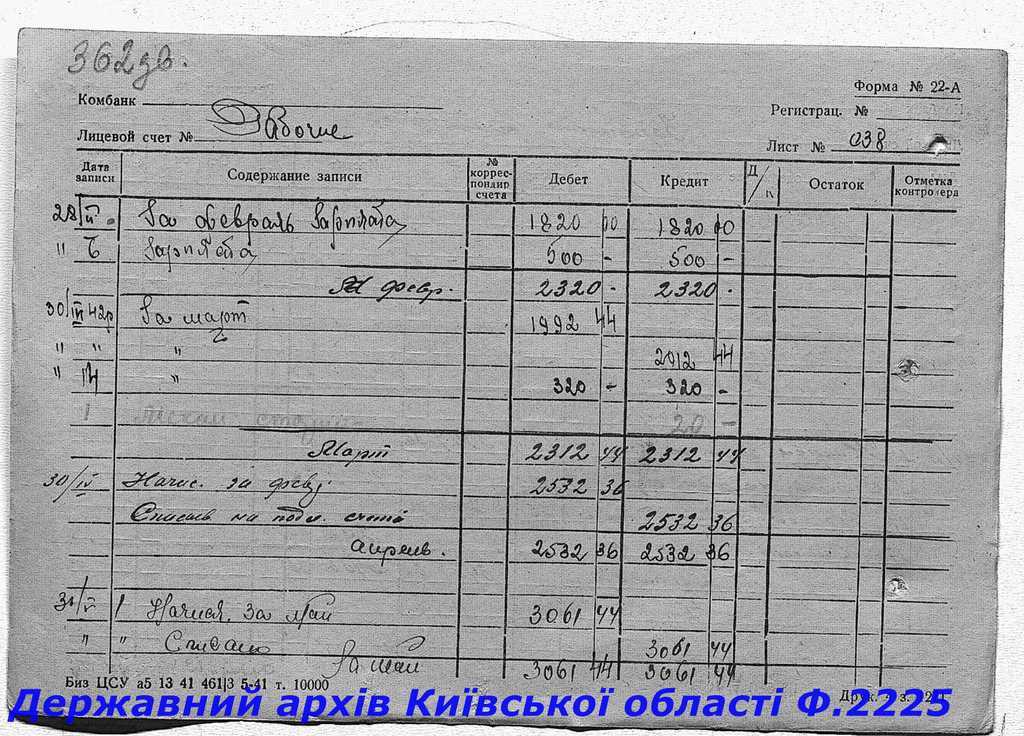 362 зв.
Форма № 22-А
Комбанк
Регистрац. №
Лицевой счет № Рабочие
Лист № 038
Дата записи Содержание записи № коррес-пондир счета Дебет Кредит Д/К Остаток Отметка контролера
28/II За февраль Зарплата 1820 00 1820 00
" 6 Зарплата 500 - 500 -
За февр. 2320 - 2320 -
30/III 42р За март 1992 44
" " " 2012 44
" 14 " 320 - 320 -
20 -
Март 2312 44 2312 44
30/IV Начис. за февр. 2532 36
Списыв на подл. счета 2532 36
Апрель. 2532 36 2532 36
31/V Начисл. За май 3061 44
" " Списано 3061 44
За май 3061 44 3061 44
Биз ЦСУ а5 13 41 461|3 5-41 т. 10000
Державний архів Київської області Ф.2225